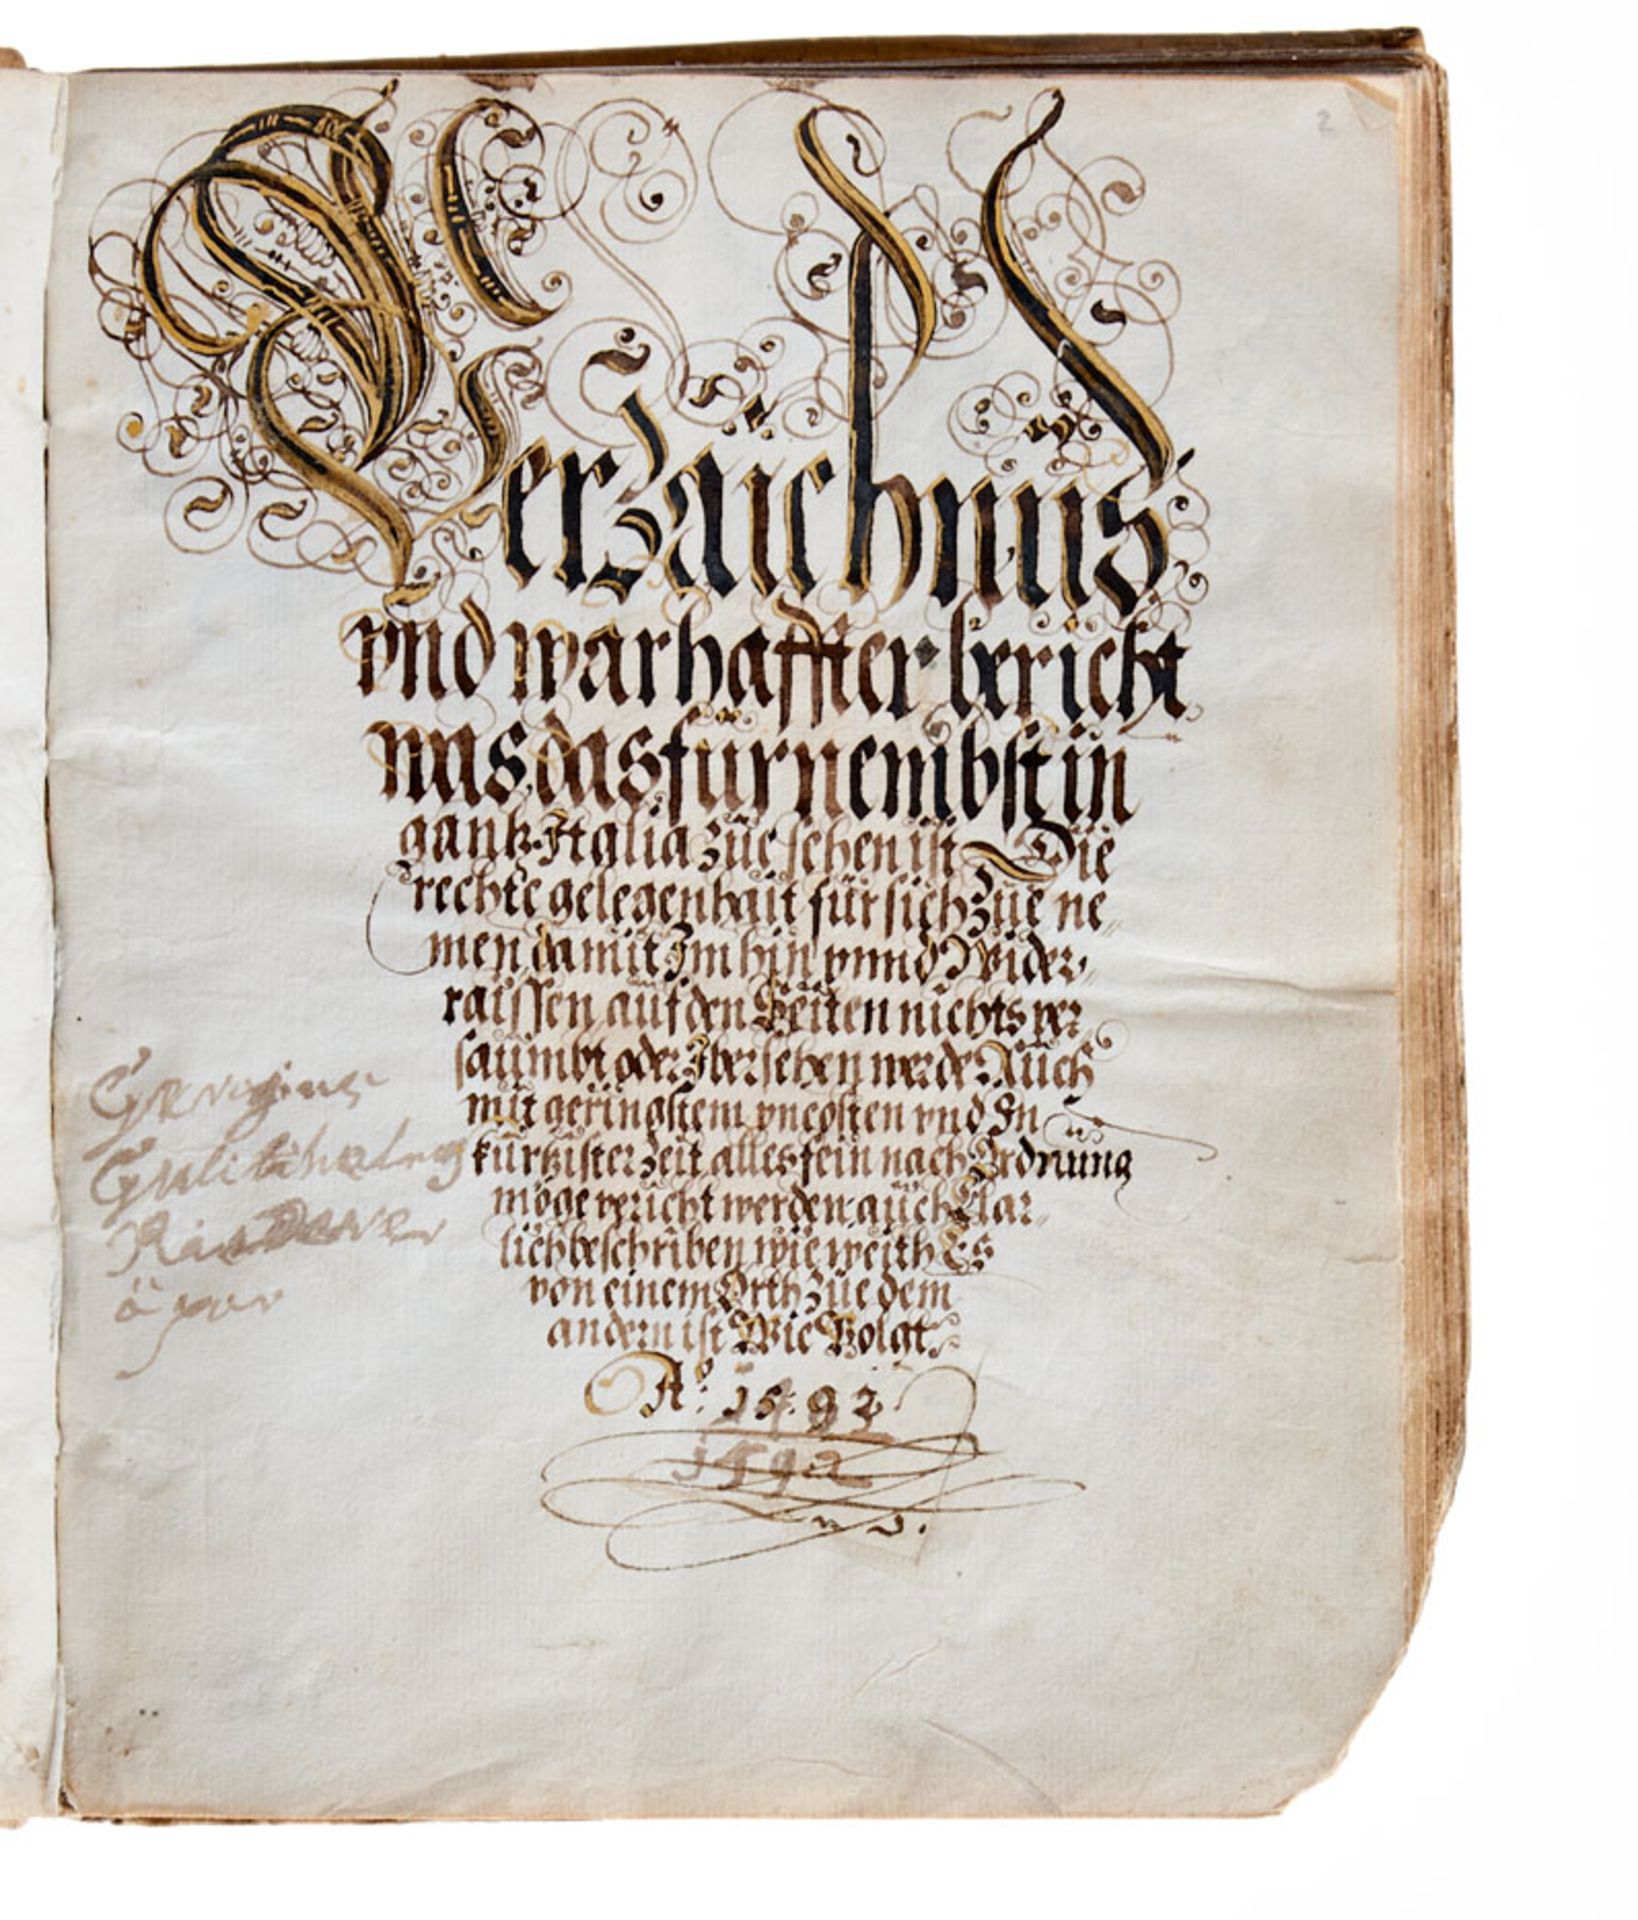 2
Verzaichnus
vnd warhaffter bericht
was das fürnembst in
gantz Italia züe sehen ist Die
rechte gelegenhait für sich züe ne„
men damit Im hin vnnd Wider„
raissen auf den Seiten nichts ver„
saümbt oder Ibersehen werde Aüch
mit geringstem vncosten vnd In
kürtzister zeit alles fein nach Ordnüng
möge vericht werden aüch Clar„
lich beschriben wie weith Es
von einem Orth züe dem
andern ist Wie Volgt.
Aº: 15.92
1592